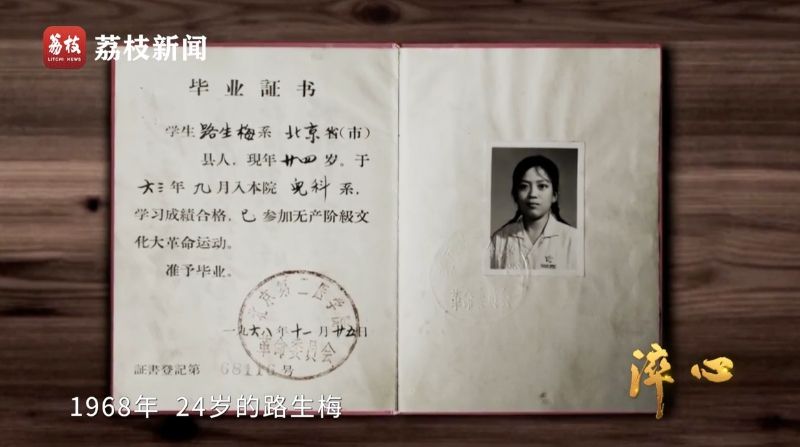 荔枝
LITCHI NEWS
荔枝新闻
毕业証书
学生路生梅系北京省(市)
县人，现年廿四岁。于
六三年九月入本院儿科系，
学习成績合格，已参加无产阶級文
化大革命运动。
准予毕业。
北京第二医学院
革命委员会
一九六八年十一月廿五日
証書登記第68116号
革命委员会
淬心
1968年 24岁的路生梅